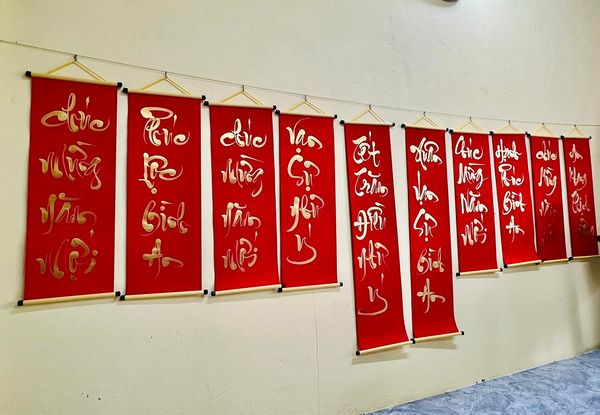 Chúc
Mừng
Năm
Mới
Phúc
Lộc
Bình
An
Chúc
Mừng
Năm
Mới
Vạn
Sự
Như
Ý
Tết
Trăm
Điều
Như
Ý
Xuân
Vạn
Sự
Bình
An
Chúc
Mừng
Năm
Mới
Hạnh
Phúc
Bình
An
Chúc
Mừng
Năm
Mới
An
Khang